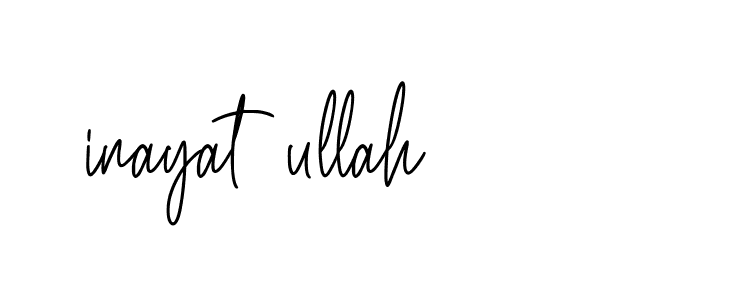 inayat ullah